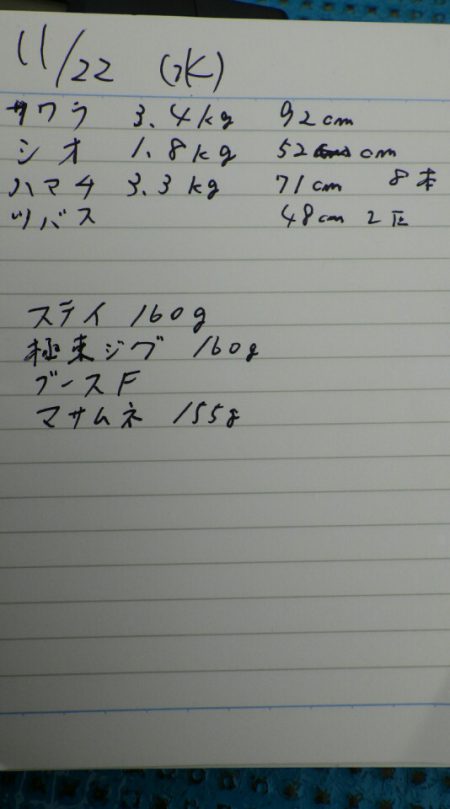 11/22 (水)
サワラ 3.4kg 92cm
シオ 1.8kg 52cm
ハマチ 3.3kg 71cm 8本
ツバス 48cm 2匹
ステイ 160g
極東ジグ 160g
ブースF
マサムネ 155g